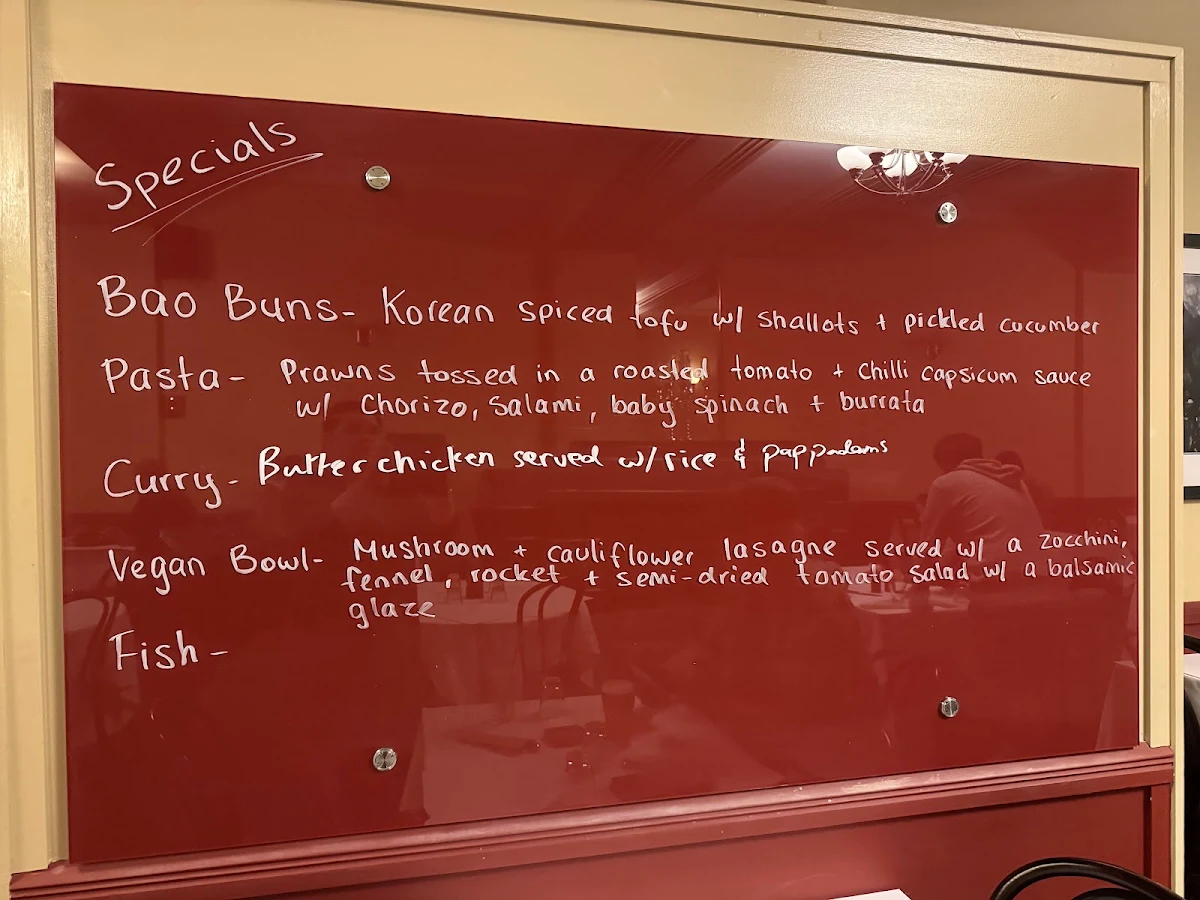 Specials
Bao Buns- Korean spiced tofu w/ shallots + pickled cucumber
Pasta- Prawns tossed in a roasted tomato + chilli capsicum sauce
w/ chorizo, salami, baby spinach + burrata
Curry- Butter chicken served w/ rice & pappadams
Vegan Bowl- Mushroom + cauliflower lasagne served w/ a zocchini,
fennel, rocket + semi-dried tomato salad w/ a balsamic
glaze
Fish-